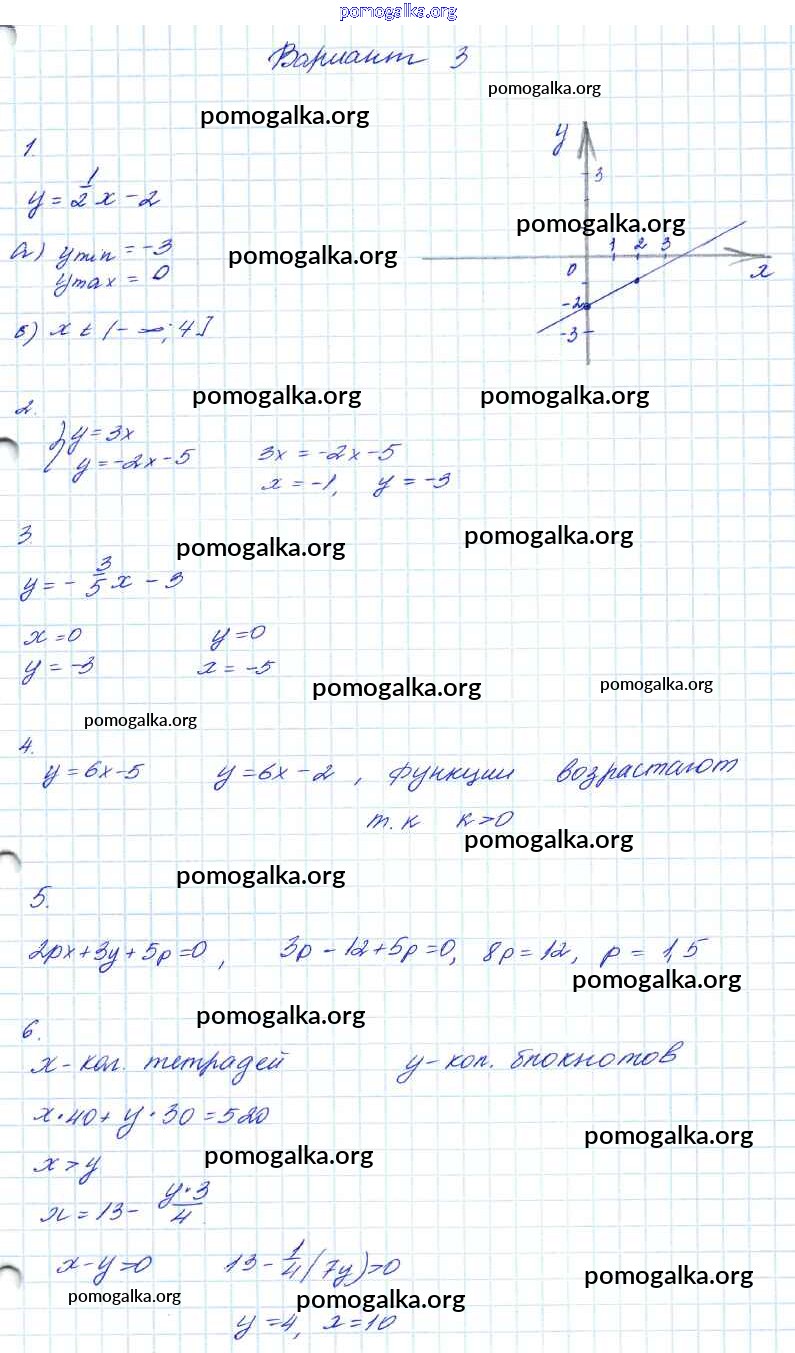 pomogalka.org
Вариант 3
pomogalka.org
pomogalka.org
1.
y = 1/2 x - 2
y
3
pomogalka.org
1 2 3
0
x
-2
-3
а) y min = -3
y max = 0
pomogalka.org
б) x ∈ (-∞; 4]
pomogalka.org
pomogalka.org
2.
{ y = 3x
y = -2x - 5
3x = -2x - 5
x = -1, y = -3
3.
pomogalka.org
pomogalka.org
y = - 3/5 x - 3
x = 0 y = 0
y = -3 x = -5
pomogalka.org
pomogalka.org
pomogalka.org
4.
y = 6x - 5 y = 6x - 2, функции возрастают
т.к k > 0
pomogalka.org
pomogalka.org
5.
2px + 3y + 5p = 0, 3p - 12 + 5p = 0, 8p = 12, p = 1,5
pomogalka.org
pomogalka.org
6.
x - кол. тетрадей y - кол. блокнотов
x · 40 + y · 30 = 520
pomogalka.org
x > y
pomogalka.org
x = 13 - y·3/4
x - y > 0 13 - 1/4 (7y) > 0
pomogalka.org
pomogalka.org
pomogalka.org
y = 4, x = 10